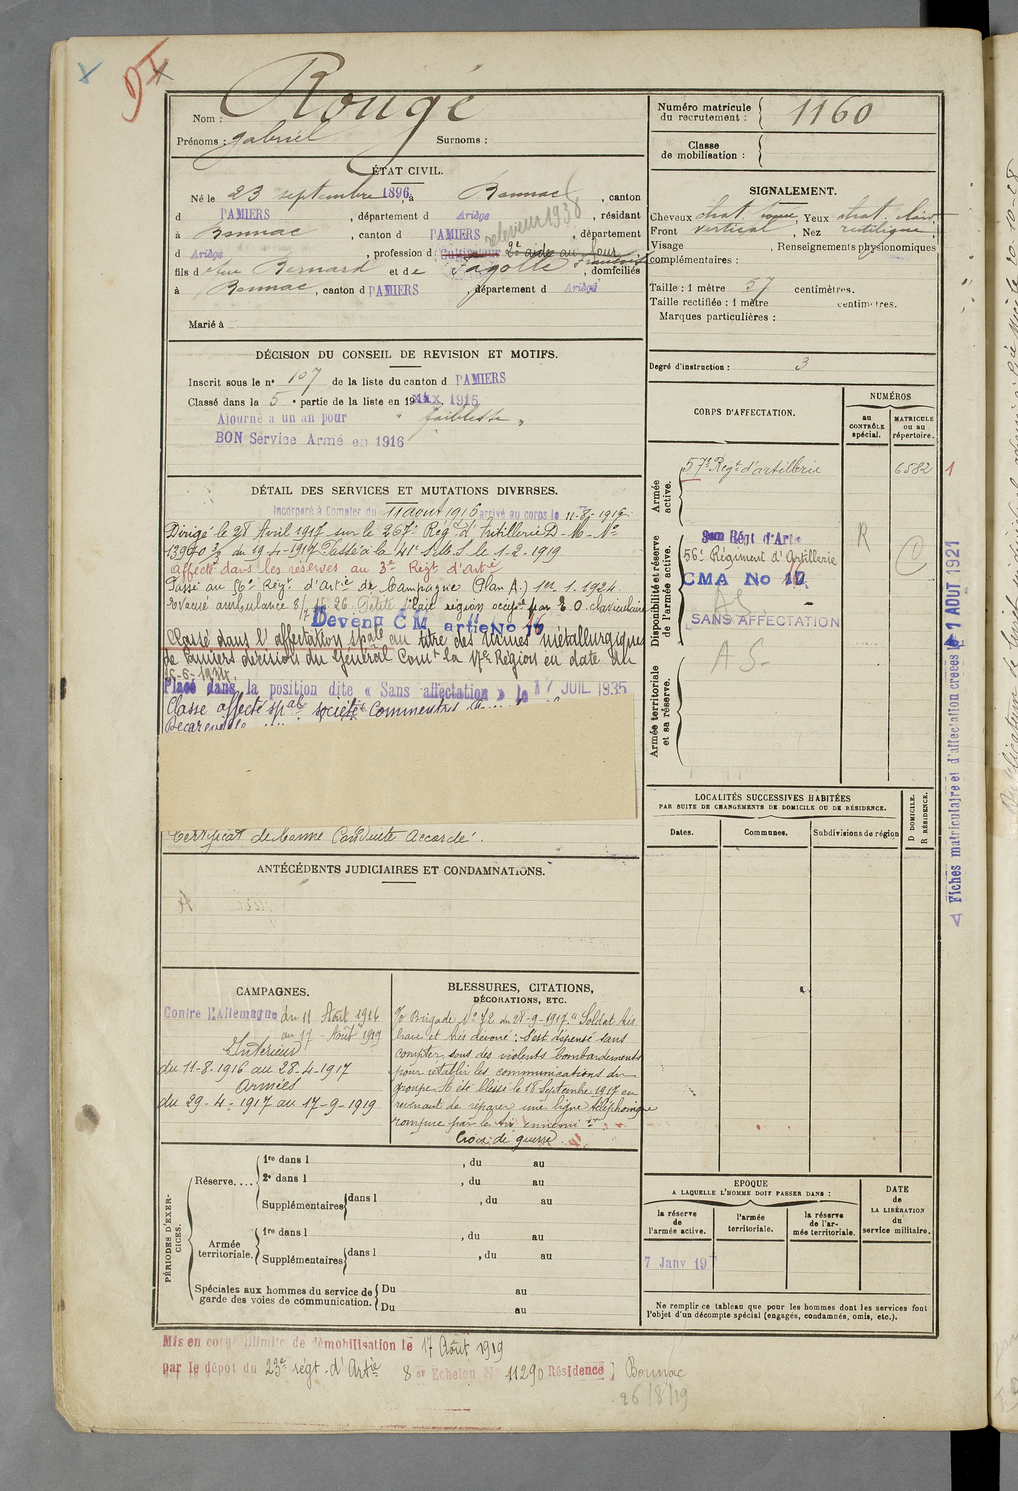 Nom : Rougé
Prénoms : Gabriel Surnoms :
Numéro matricule du recrutement : 1160
Classe de mobilisation :
ÉTAT CIVIL.
Né le 23 septembre 1896, à Bonnac, canton
d PAMIERS, département d Ariège, résidant
à Bonnac, canton d PAMIERS, département
releveur 1938
d Ariège, profession d Cultivateur 2e aide au four
fils d Bernard et de Fagolle Françoise, domiciliés
à Bonnac, canton d PAMIERS, département d Ariège
Marié à
SIGNALEMENT.
Cheveux chat. Yeux chat. clair
Front vertical, Nez rectiligne
Visage , Renseignements physionomiques
complémentaires :
Taille : 1 mètre 57 centimètres.
Taille rectifiée : 1 mètre centimètres.
Marques particulières :
Degré d'instruction : 3
DÉCISION DU CONSEIL DE REVISION ET MOTIFS.
Inscrit sous le n° 107 de la liste du canton d PAMIERS
Classé dans la 5e partie de la liste en 19 1915
Ajourné a un an pour " faiblesse "
BON Service Armé en 1916
DÉTAIL DES SERVICES ET MUTATIONS DIVERSES.
Incorporé à Compter du 11 août 1916 arrivé au corps le 11-8-1916
Dirigé le 28 Avril 1917 sur le 267e Rég. d'Artillerie D. M. No
13940 3/3 du 19-4-1917 Passé à la 41e le 1-2-1919
Affecté dans les réserves au 3e Regt d'Artie
Passé au 56e Régt d'Artie de Campagne (Plan A.) 1er 1. 1924
Evacué ambulance 8/16 26. Petite plaie région occipe par E.O. claviculaire
Devenu CM artie No 17 16
Classé dans l'affectation spale au titre des usines métallurgiques
de Pamiers décision du Général Comt la 17e Région en date du
25-6-1934.
Placé dans la position dite « Sans affectation » le 17 JUIL. 1935
Classé affecté spal société Commentry
Decazeville
Certificat de bonne Conduite Accordé.
CORPS D'AFFECTATION.
NUMÉROS
au CONTRÔLE spécial.
MATRICULE ou au répertoire.
Armée active.
57e Régt d'artillerie 6582
Disponibilité et réserve de l'armée active.
3em Régt d'Artie R
56e Régiment d'Artillerie
CMA No 17
A S
SANS AFFECTATION
Armée territoriale et sa réserve.
A S
Fiches matriculaire et d'affectation créées le 1 AOUT 1921
LOCALITÉS SUCCESSIVES HABITÉES
PAR SUITE DE CHANGEMENTS DE DOMICILE OU DE RÉSIDENCE.
Dates. Communes. Subdivisions de région
D DOMICILE. R RÉSIDENCE.
ANTÉCÉDENTS JUDICIAIRES ET CONDAMNATIONS.
CAMPAGNES.
Contre l'Allemagne du 11 Août 1916
au 17 Août 1919
Intérieur
du 11-8-1916 au 28-4-1917
Armées
du 29-4-1917 au 17-9-1919
BLESSURES, CITATIONS,
DÉCORATIONS, ETC.
Brigade No 72 du 28-9-1917. "Soldat très
brave et très dévoué : S'est dépensé sans
compter, sous des violents bombardements
pour rétablir les communications du
groupe. A été blessé le 18 Septembre 1917 en
revenant de réparer une ligne téléphonique
rompue par le tir ennemi"
Croix de guerre
PÉRIODES D'EXERCICES.
Réserve.... 1re dans l , du au
2e dans l , du au
Supplémentaires dans l , du au
Armée territoriale. 1re dans l , du au
Supplémentaires dans l , du au
Spéciales aux hommes du service de garde des voies de communication. Du au
Du au
EPOQUE
A LAQUELLE L'HOMME DOIT PASSER DANS :
la réserve de l'armée active.
l'armée territoriale.
la réserve de l'armée territoriale.
DATE de LA LIBÉRATION du service militaire.
7 Janv 19
Ne remplir ce tableau que pour les hommes dont les services font
l'objet d'un décompte spécial (engagés, condamnés, omis, etc.).
Mis en congé illimité de démobilisation le 17 Août 1919
par le dépôt du 23e régt d'Artie 8 em Echelon No 11290 Résidence Bonnac
26/8/19